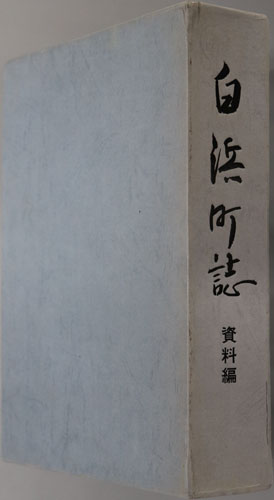 白浜町誌
資料編